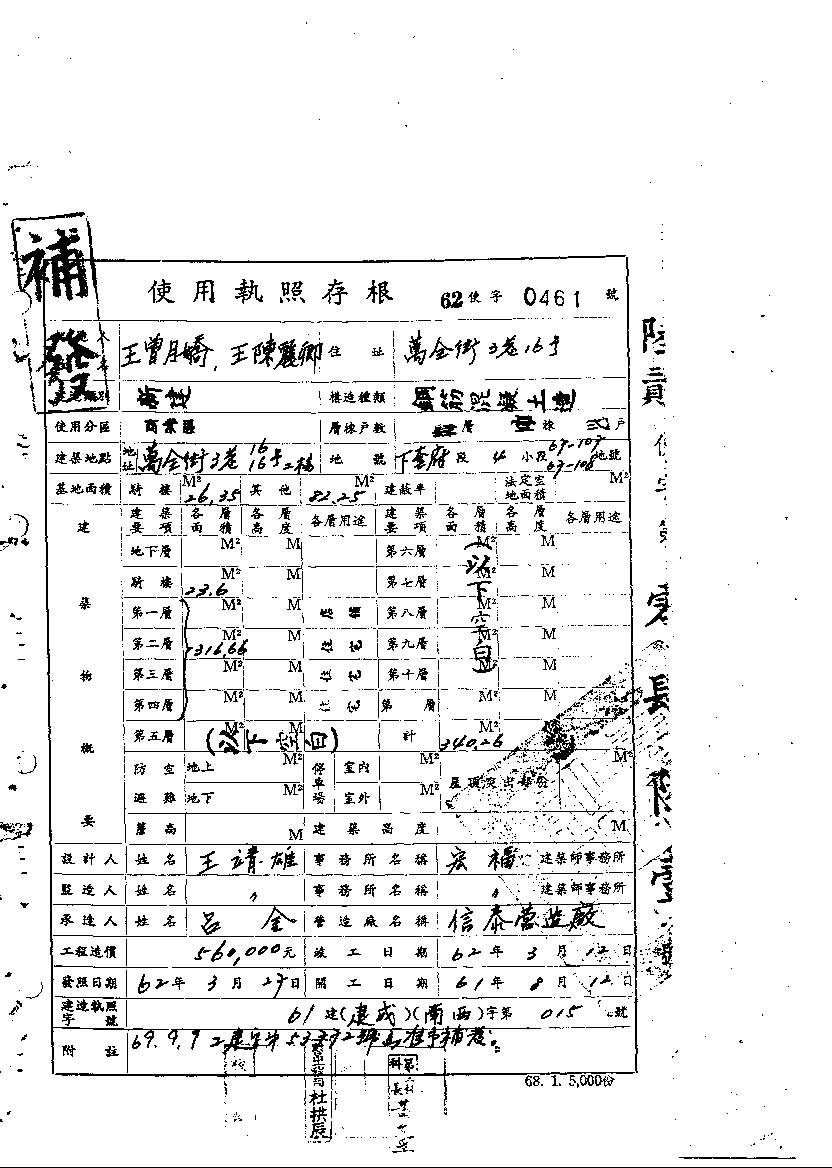 補發
使用執照存根 62使字 0461 號
王曾月嬌、王陳麗卿 住址 萬全街3巷16号
新建 構造種類 鋼筋混凝土造
使用分區 商業區 層棟戶數 層 棟 戶
建築地點 地址 萬全街3巷 16 16号二樓 地號 下奎府段 4 小段 69-107 69-108 地號
基地面積 騎樓 26.35 M² 其他 82.25 M² 建蔽率 法定空地面積 M²
建築物概要 建築要項 各層面積 各層高度 各層用途 建築要項 各層面積 各層高度 各層用途
地下層 M² M 第六層 M² M
騎樓 23.6 M² M 第七層 M² M
第一層 M² M 第八層 M² M
第二層 316.66 M² M 住宅 第九層 M² M
第三層 M² M 住宅 第十層 M² M
第四層 M² M 住宅 第 層 M² M
(以下空白)
第五層 M² M (以下空白) 計 340.26 M² M
防空避難 地上 M² 停車場 室內 M² 屋頂突出部份 M²
地下 M² 室外 M²
簷高 M 建築高度 M
設計人 姓名 王靖雄 事務所名稱 宏福 建築師事務所
監造人 姓名 〃 事務所名稱 〃 建築師事務所
承造人 姓名 呂金 營造廠名稱 信泰營造廠
工程造價 560,000元 竣工日期 62年3月12日
發照日期 62年3月27日 開工日期 61年8月12日
建造執照字號 61建(建成)(南西)字第 015 號
附註 69.9.9
杜拱辰
科長
68. 1. 5,000份